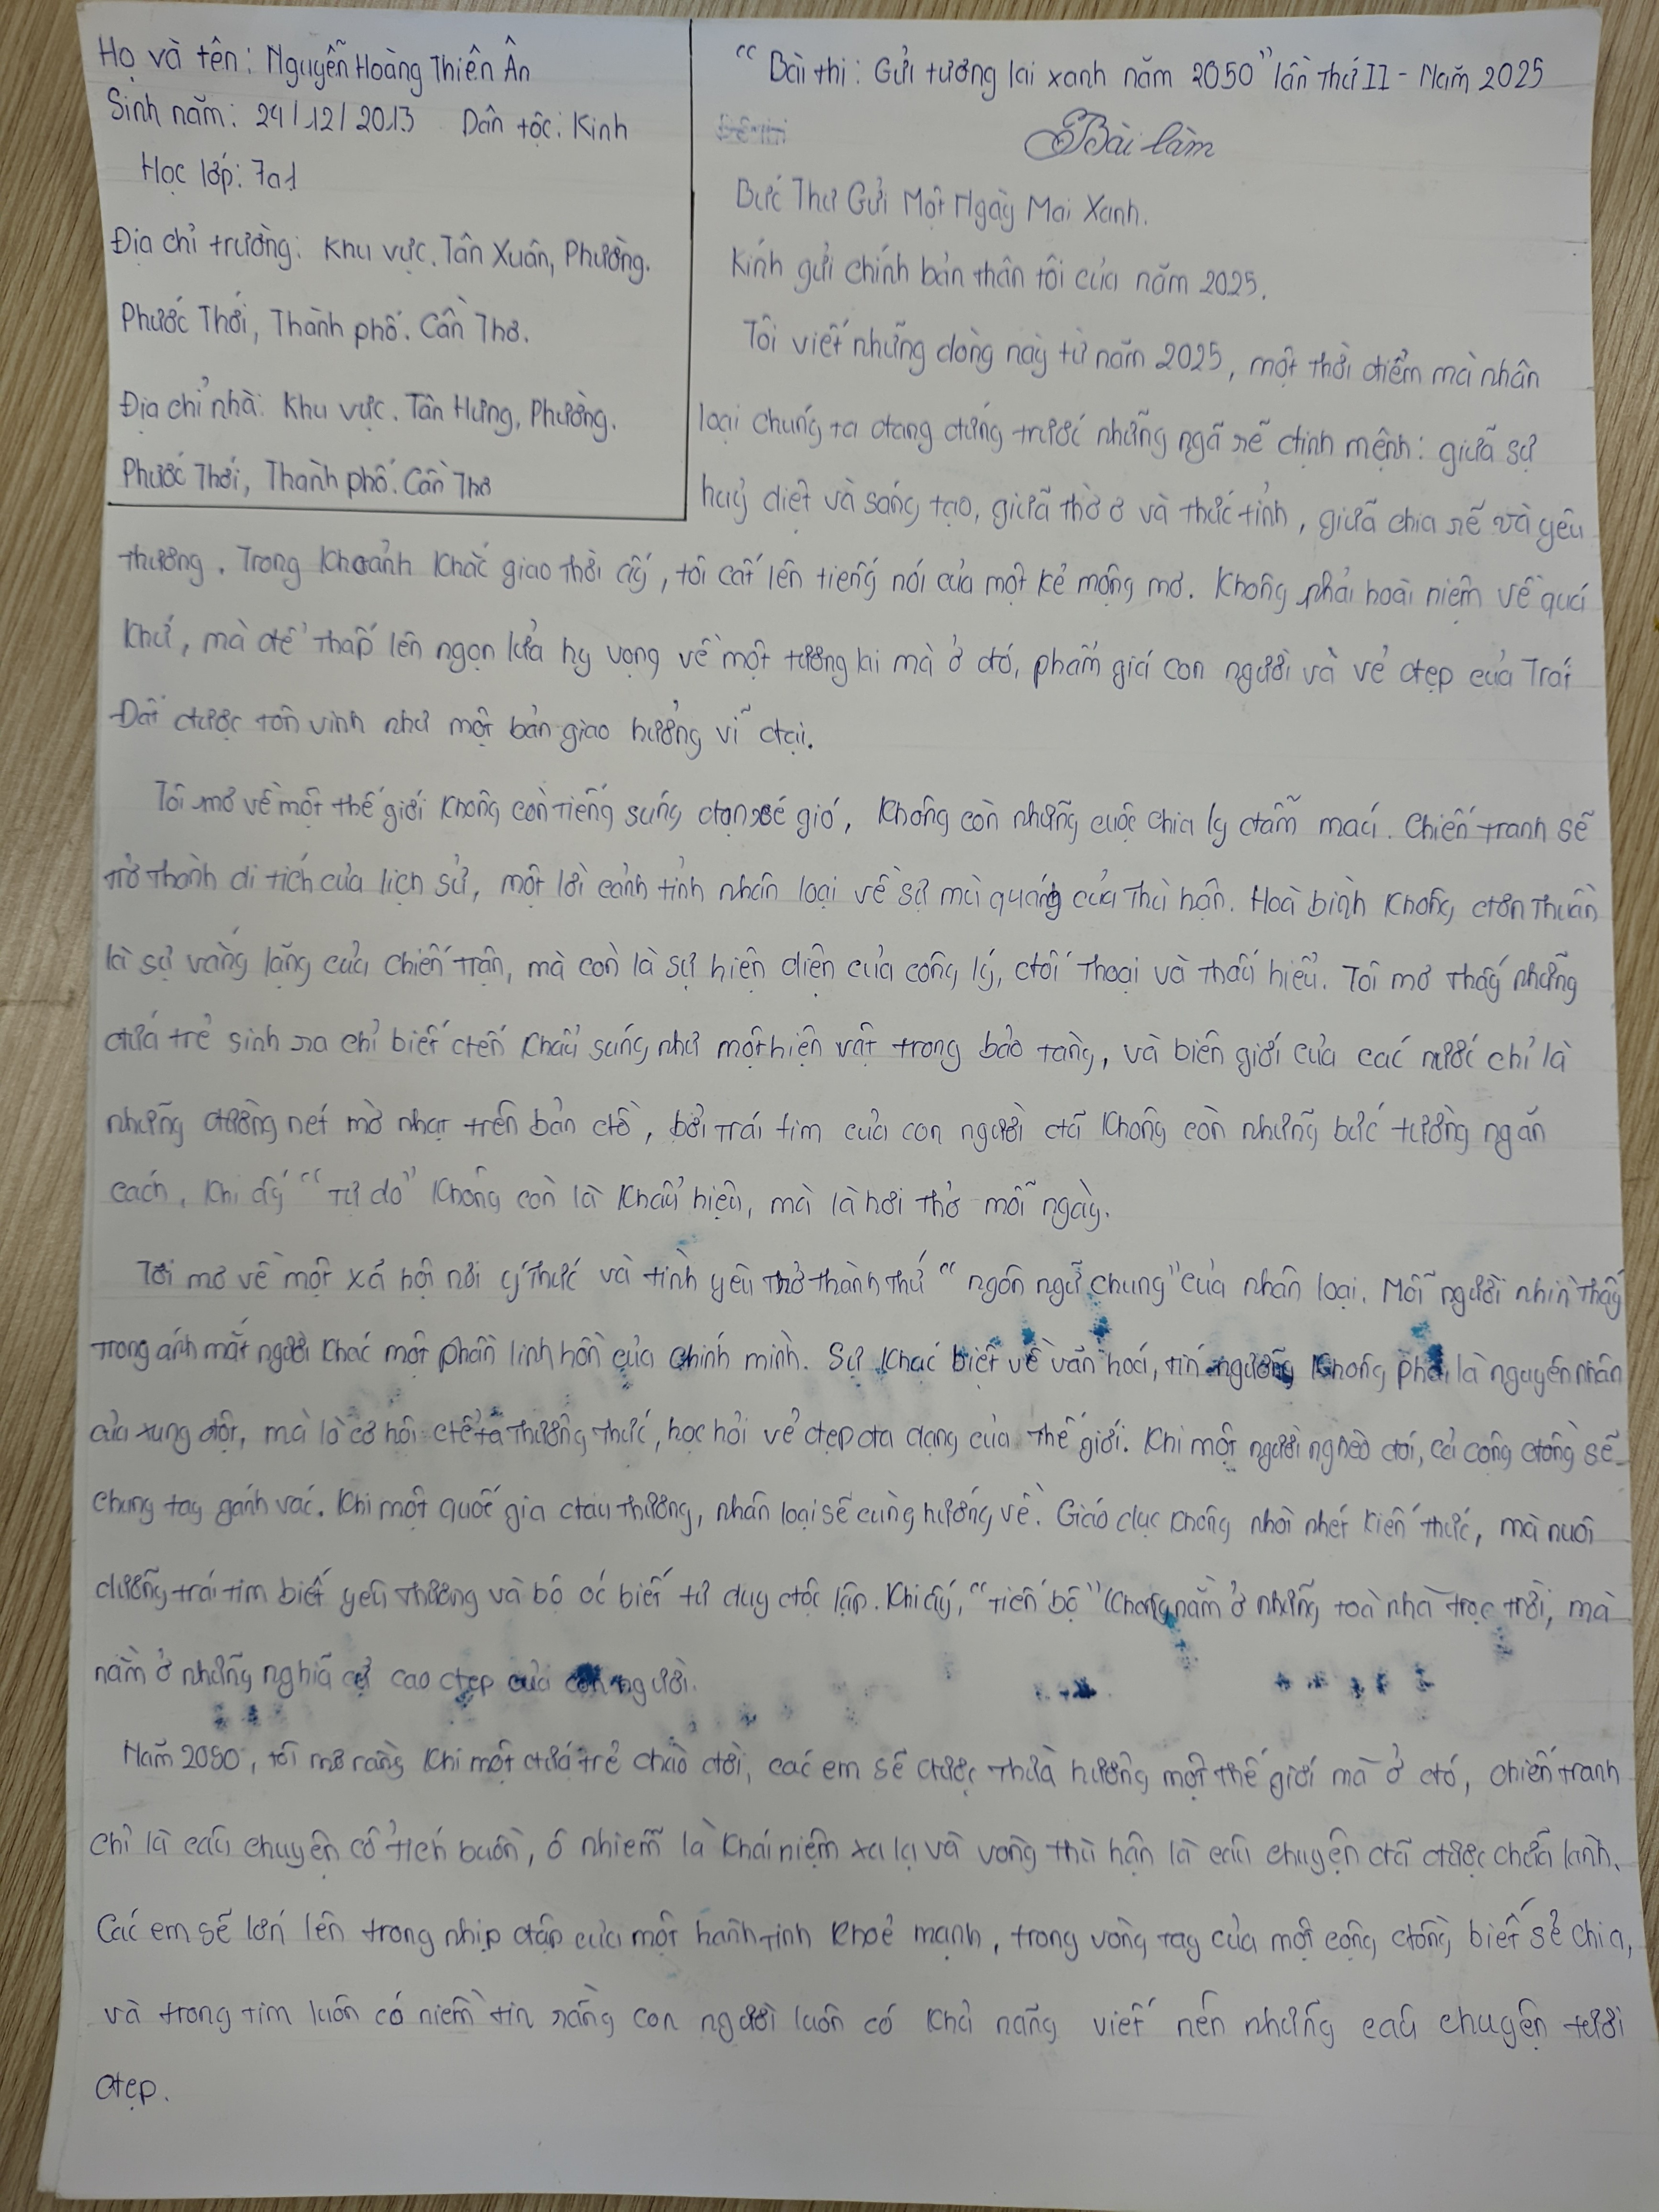 Họ và tên: Nguyễn Hoàng Thiên Ân
Sinh năm: 24/12/2013 Dân tộc: Kinh
Học lớp: 7a1
Địa chỉ trường: Khu vực. Tân Xuân, Phường.
Phước Thới, Thành phố. Cần Thơ.
Địa chỉ nhà: Khu vực. Tân Hưng, Phường.
Phước Thới, Thành phố. Cần Thơ
"Bài thi: Gửi tương lai xanh năm 2050" lần thứ II - Năm 2025
Bài làm
Bức Thư Gửi Một Ngày Mai Xanh.
Kính gửi chính bản thân tôi của năm 2025.
Tôi viết những dòng này từ năm 2025, một thời điểm mà nhân
loại chúng ta đang đứng trước những ngã rẽ định mệnh: giữa sự
huỷ diệt và sáng tạo, giữa thờ ơ và thức tỉnh, giữa chia rẽ và yêu
thương. Trong khoảnh khắc giao thời ấy, tôi cất lên tiếng nói của một kẻ mộng mơ. Không phải hoài niệm về quá
khứ, mà để thắp lên ngọn lửa hy vọng về một tương lai mà ở đó, phẩm giá con người và vẻ đẹp của Trái
Đất được tôn vinh như một bản giao hưởng vĩ đại.
Tôi mơ về một thế giới không còn tiếng súng đạn xé gió, không còn những cuộc chia ly đẫm máu. Chiến tranh sẽ
trở thành di tích của lịch sử, một lời cảnh tỉnh nhân loại về sự mù quáng của thù hận. Hoà bình không đơn thuần
là sự vắng lặng của chiến trận, mà còn là sự hiện diện của công lý, đối thoại và thấu hiểu. Tôi mơ thấy những
đứa trẻ sinh ra chỉ biết đến khẩu súng như một hiện vật trong bảo tàng, và biên giới của các nước chỉ là
những đường nét mờ nhạt trên bản đồ, bởi trái tim của con người đã không còn những bức tường ngăn
cách. Khi ấy "tự do" không còn là khẩu hiệu, mà là hơi thở mỗi ngày.
Tôi mơ về một xã hội nơi ý thức và tình yêu trở thành thứ "ngôn ngữ chung" của nhân loại. Mỗi người nhìn thấy
trong ánh mắt người khác một phần linh hồn của chính mình. Sự khác biệt về văn hoá, tín ngưỡng không phải là nguyên nhân
của xung đột, mà là cơ hội để ta thưởng thức, học hỏi vẻ đẹp đa dạng của thế giới. Khi một người nghèo đói, cả cộng đồng sẽ
chung tay gánh vác. Khi một quốc gia đau thương, nhân loại sẽ cùng hướng về. Giáo dục không nhồi nhét kiến thức, mà nuôi
dưỡng trái tim biết yêu thương và bộ óc biết tư duy độc lập. Khi ấy, "tiến bộ" không nằm ở những toà nhà trọc trời, mà
nằm ở những nghĩa cử cao đẹp của con người.
Năm 2050, tôi mơ rằng khi một đứa trẻ chào đời, các em sẽ được thừa hưởng một thế giới mà ở đó, chiến tranh
chỉ là câu chuyện cổ tích buồn, ô nhiễm là khái niệm xa lạ và vòng thù hận là câu chuyện đã được chữa lành.
Các em sẽ lớn lên trong nhịp đập của một hành tinh khoẻ mạnh, trong vòng tay của một cộng đồng biết sẻ chia,
và trong tim luôn có niềm tin rằng con người luôn có khả năng viết nên những câu chuyện tươi
đẹp.